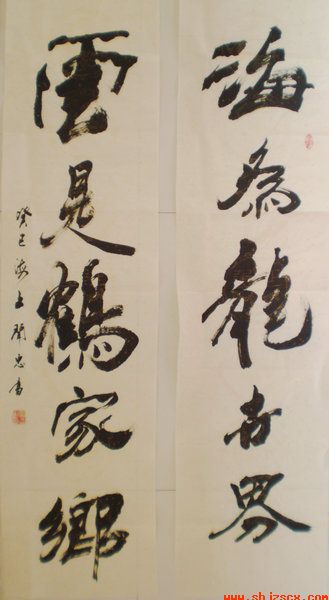 海為龍世界
雲是鶴家鄉
癸巳海上開忠書
www.shjzscx.com